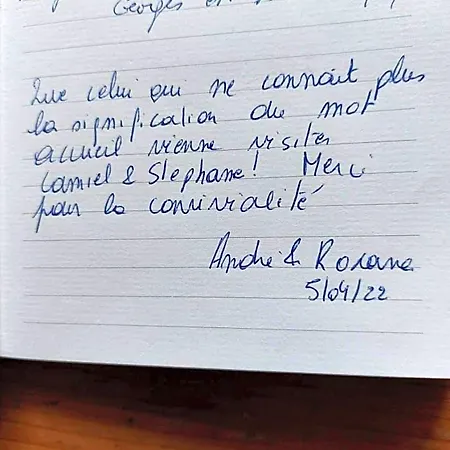 Georges
Que celui qui ne connait plus
la signification du mot
accueil vienne visiter
Camiel & Stephane! Merci
pour la convivialité
André & Roxane
5/04/22